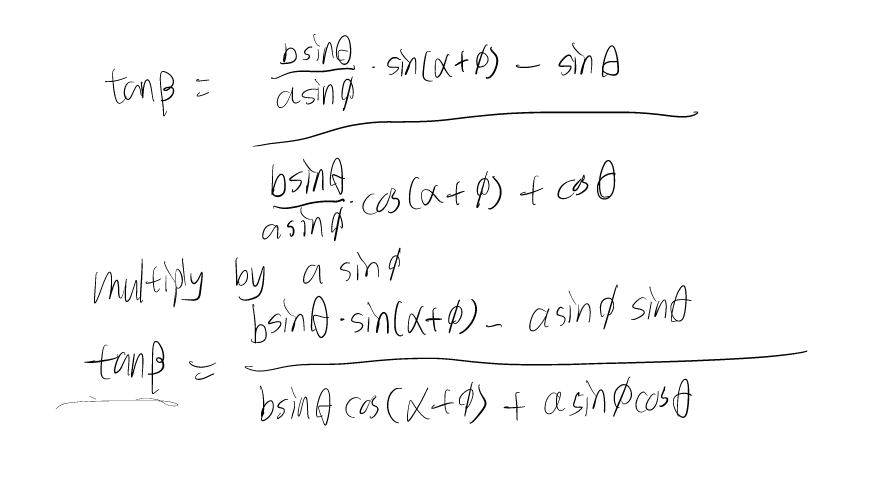 tanβ = (bsinθ / asinϕ · sin(α+ϕ) − sinθ) / (bsinθ / asinϕ · cos(α+ϕ) + cosθ)
multiply by a sinϕ
tanβ = (bsinθ·sin(α+ϕ) − asinϕ sinθ) / (bsinθ cos(α+ϕ) + asinϕcosθ)